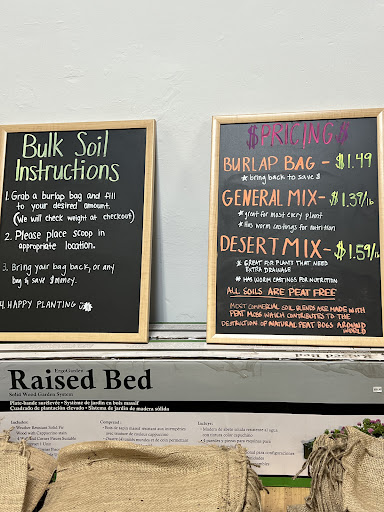 Bulk Soil
Instructions
1. Grab a burlap bag and fill
to your desired amount.
(We will check weight at checkout)
2. Please place scoop in
appropriate location.
3. Bring your bag back, or any
bag & save $ money.
4. HAPPY PLANTING
$PRICING$
BURLAP BAG - $1.49
* bring back to save $
GENERAL MIX - $1.39/lb
* great for most every plant
* Has worm castings for nutrition
DESERT MIX - $1.59/lb
* GREAT FOR PLANTS THAT NEED
EXTRA DRAINAGE
* HAS WORM CASTINGS FOR NUTRITION
ALL SOILS ARE PEAT FREE
MOST COMMERCIAL SOIL BLENDS ARE MADE WITH
PEAT MOSS WHICH CONTRIBUTES TO THE
DESTRUCTION OF NATURAL PEAT BOGS AROUND
WORLD
Raised Bed
Solid Wood Garden System
Plate-bande surélevée • Système de jardin en bois massif
Cuadrado de plantación elevado • Sistema de jardín de madera sólida
Includes:
Comprend :
Incluye: